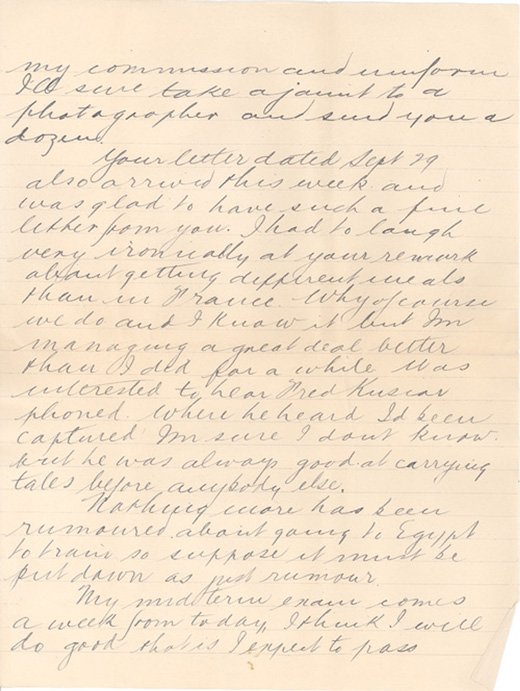 my commission and uniform
I'll sure take a jaunt to a
photographer and send you a
dozen.
Your letter dated Sept 29
also arrived this week and
was glad to have such a fine
letter from you. I had to laugh
very ironically at your remark
about getting different meals
than in France. Why of course
we do and I know it but I'm
managing a great deal better
than I did for a while. Was
interested to hear Fred
phoned. Where he heard I'd been
captured I'm sure I dont know.
but he was always good at carrying
tales before anybody else.
Nothing more has been
rumoured about going to Egypt
to train so suppose it must be
put down as just rumour.
My mid term exam comes
a week from today, I think I will
do good that is I expect to pass